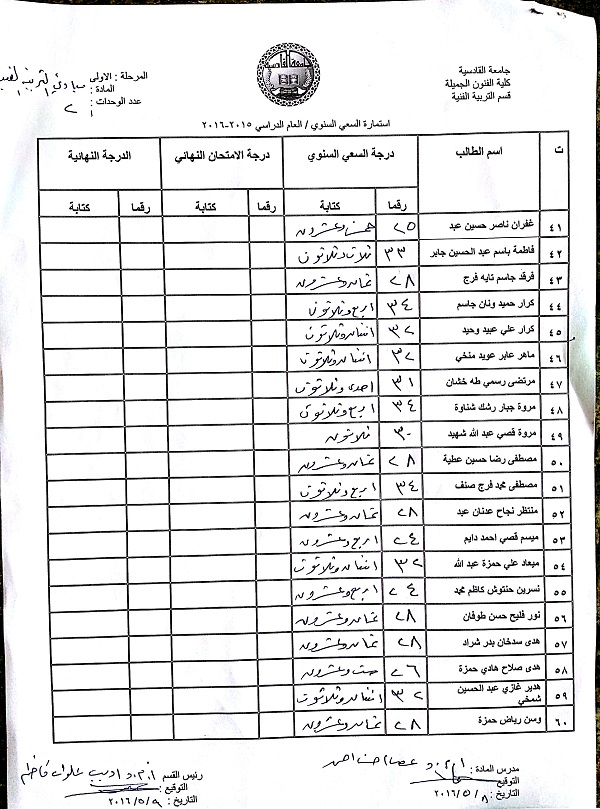 جامعة القادسية
كلية الفنون الجميلة
قسم التربية الفنية
المرحلة : الاولى
المادة : مبادئ التربية
عدد الوحدات : ٢
استمارة السعي السنوي / العام الدراسي ٢٠١٥-٢٠١٦
ت اسم الطالب درجة السعي السنوي درجة الامتحان النهائي الدرجة النهائية
رقما كتابة رقما كتابة رقما كتابة
٤١ غفران ناصر حسين عبد ٢٥ خمس وعشرون
٤٢ فاطمة باسم عبد الحسين جابر ٣٣ ثلاث وثلاثون
٤٣ فرقد جاسم تايه فرج ٢٨ ثمان وعشرون
٤٤ كرار حميد ونان جاسم ٣٤ اربع وثلاثون
٤٥ كرار علي عبيد وحيد ٣٢ اثنان وثلاثون
٤٦ ماهر عابر عويد منخي ٣٢ اثنان وثلاثون
٤٧ مرتضى رسمي طه خشان ٣١ احدى وثلاثون
٤٨ مروة جبار رشك شناوة ٣٤ اربع وثلاثون
٤٩ مروة قصي عبد الله شهيد ٣٠ ثلاثون
٥٠ مصطفى رضا حسين عطية ٢٨ ثمان وعشرون
٥١ مصطفى محمد فرج صنف ٣٤ اربع وثلاثون
٥٢ منتظر نجاح عدنان عبد ٢٨ ثمان وعشرون
٥٣ ميسم قصي احمد دايم ٢٤ اربع وعشرون
٥٤ ميعاد علي حمزة عبد الله ٣٢ اثنان وثلاثون
٥٥ نسرين حنتوش كاظم محمد ٢٤ اربع وعشرون
٥٦ نور فليح حسن طوفان ٢٨ ثمان وعشرون
٥٧ هدى سدخان بدر شراد ٢٨ ثمان وعشرون
٥٨ هدى صلاح هادي حمزة ٢٦ ست وعشرون
٥٩ هدير غازي عبد الحسين شمخي ٣٢ اثنان وثلاثون
٦٠ وسن رياض حمزة ٢٨ ثمان وعشرون
مدرس المادة : ا.م.د
التوقيع
التاريخ : ٨ / ٥ / ٢٠١٦
رئيس القسم ا.م.د اديب علوان كاظم
التوقيع :
التاريخ : ٩ / ٥ / ٢٠١٦